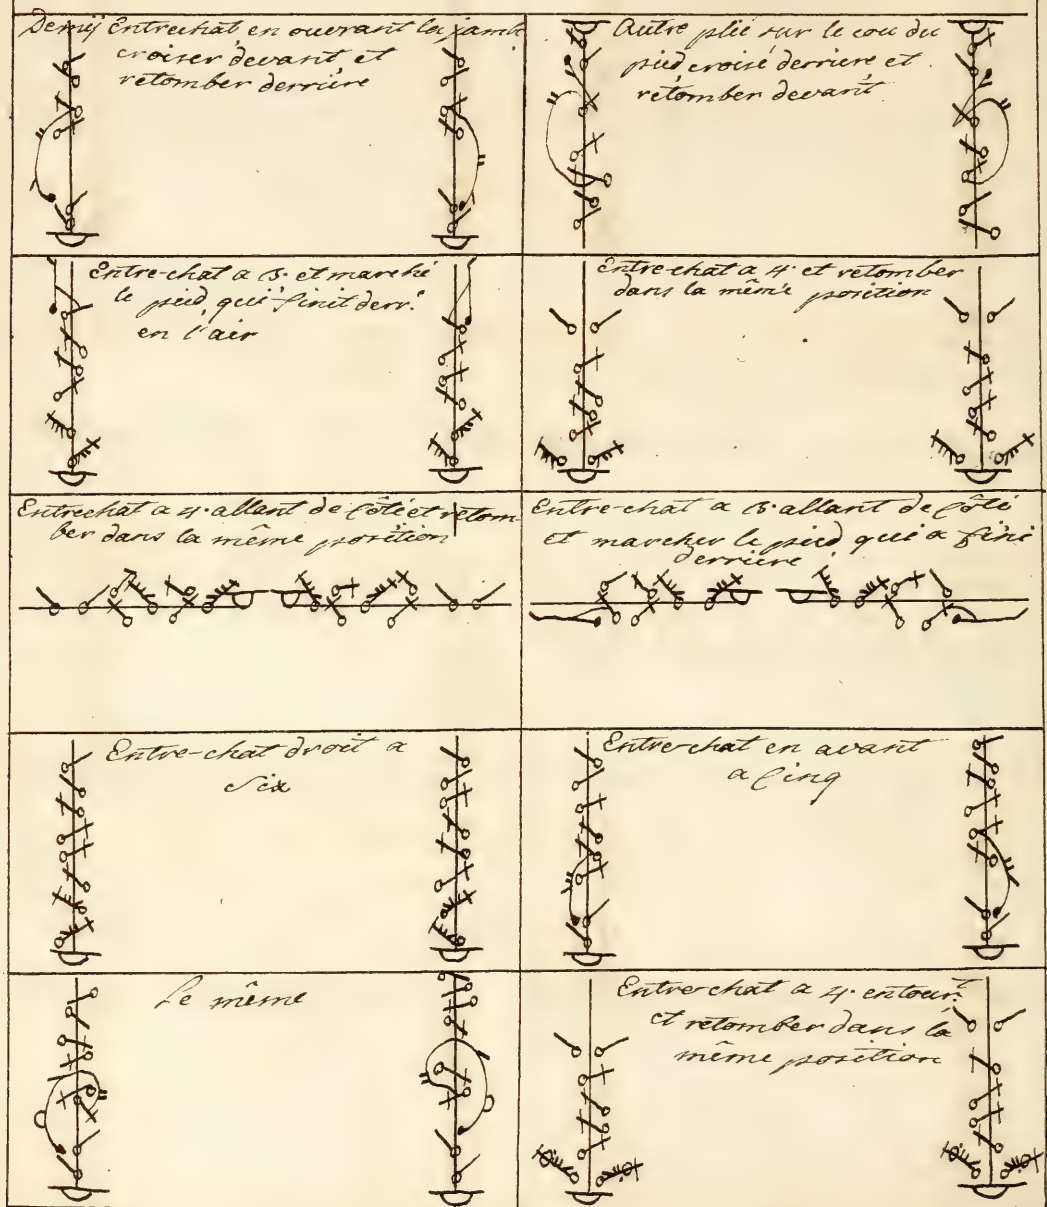 Demij Entrechat en ouvrant la jambe
croiser devant et
retomber derriere
Autre plié sur le cou du
pied croisé derriere et
retomber devant
Entre-chat a 5. et marché
le pied qui finit derr.
en l'air
Entre-chat a 4. et retomber
dans la même position
Entrechat a 4. allant de Côté et retom-
ber dans la même position
Entre-chat a 5. allant de Côté
et marcher le pied qui a fini
derriere
Entre-chat droit a
Six
Entre-chat en avant
a Cinq
Le même
Entre-chat a 4. entourt
et retomber dans la
même position